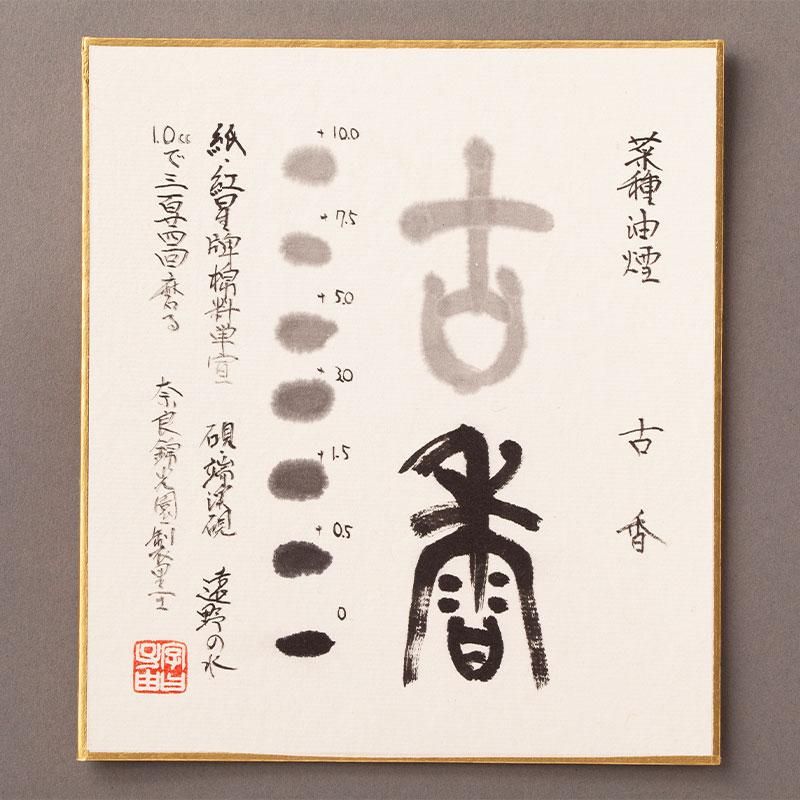 菜種油煙 古香
古香
+10.0
+7.5
+5.0
+3.0
+1.5
+0.5
0
紙・紅星牌棉料単宣 硯・端渓硯 遠野の水
1.0ccで三百四回磨る 奈良錦光園製墨